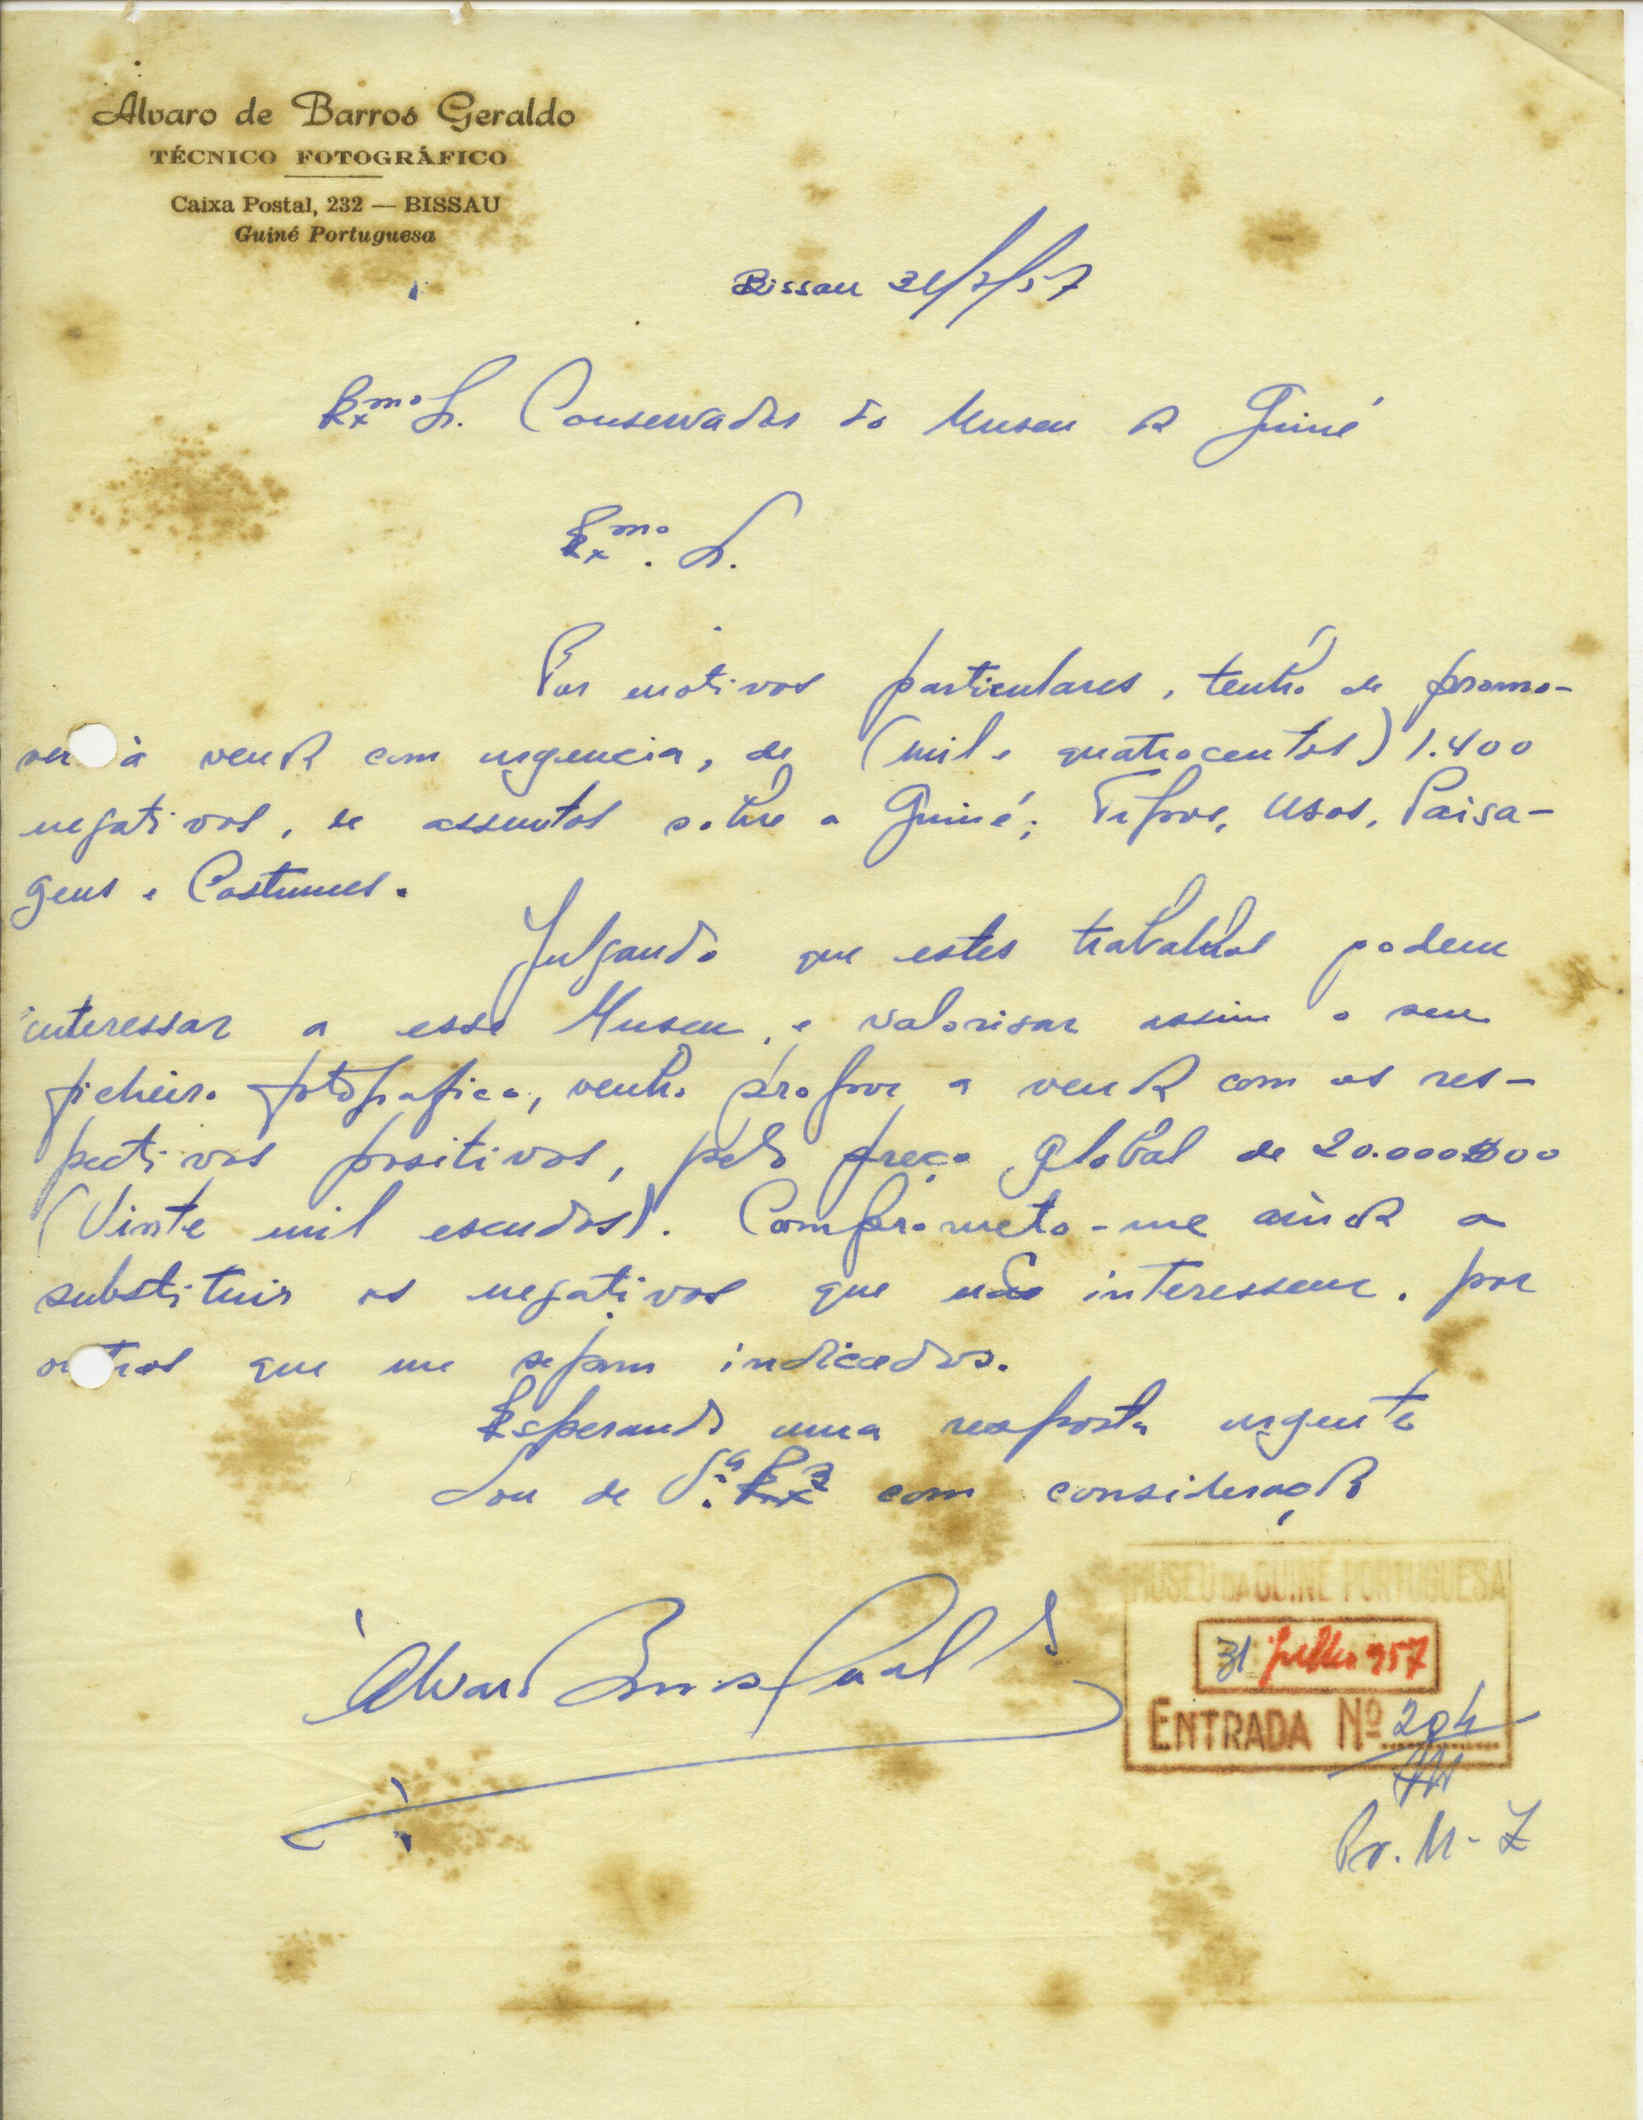 Alvaro de Barros Geraldo
TÉCNICO FOTOGRÁFICO
Caixa Postal, 232 — BISSAU
Guiné Portuguesa
Bissau 31/7/57
Exmo Sr. Conservador do Museu da Guiné
Exmo. Sr.
Por motivos particulares, tenho de promo-
ver à venda com urgencia, de (mil e quatrocentos) 1.400
negativos, de assuntos sobre a Guiné; Tipos, Usos, Paisa-
gens e Costumes.
Julgando que estes trabalhos podem
interessar a esse Museu, e valorisar assim o seu
ficheiro fotografico, venho propor a venda com os res-
pectivos positivos, pelo preço global de 20.000$00
(Vinte mil escudos). Comprometo-me ainda a
substituir os negativos que não interessem, por
outros que me sejam indicados.
Esperando uma resposta urgente
Sou de V.ª Exª com consideração
Alvaro Barros Geraldo
MUSEU DA GUINÉ PORTUGUESA
31 Julho 957
ENTRADA Nº 204
Pr. M-Z